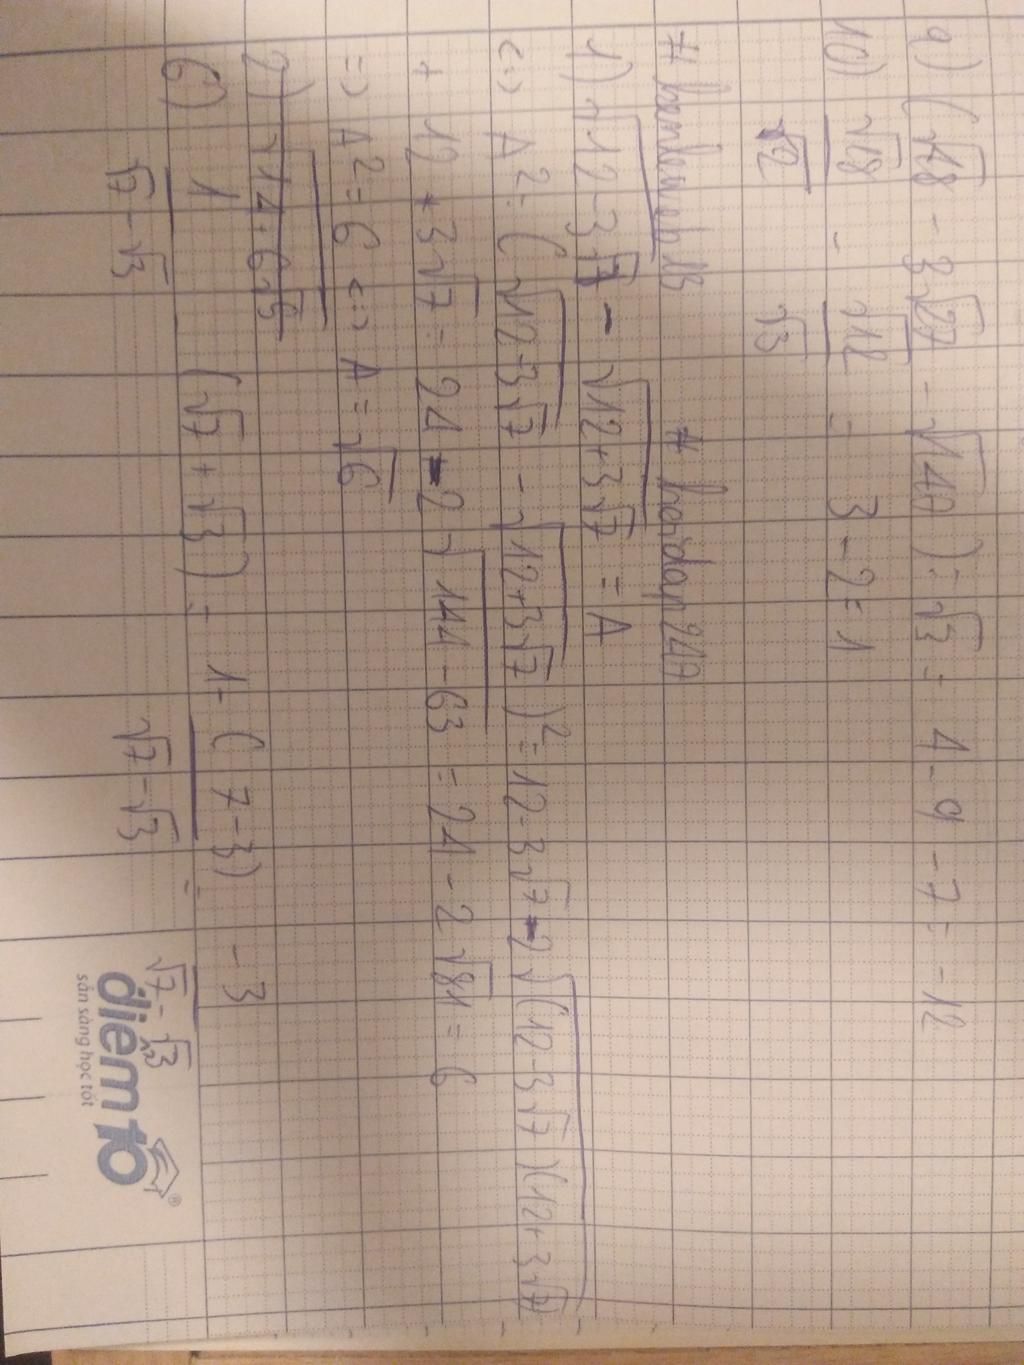 9) (√48 - 3√27 - √147) : √3 = 4 - 9 - 7 = -12
10) √18/√2 - √12/√3 = 3 - 2 = 1
# hoidap247
1) √12-3√7 - √12+3√7 = A
<=> A² = (√12-3√7 - √12+3√7)² = 12-3√7 - 2√(12-3√7)(12+3√7)
+ 12 + 3√7 = 24 - 2√144-63 = 24 - 2√81 = 6
=> A² = 6 <=> A = √6
6) 1/√7-√3 - (√7+√3) = 1-(7-3)/√7-√3 = -3/√7-√3
điểm10®
sẵn sàng học tốt